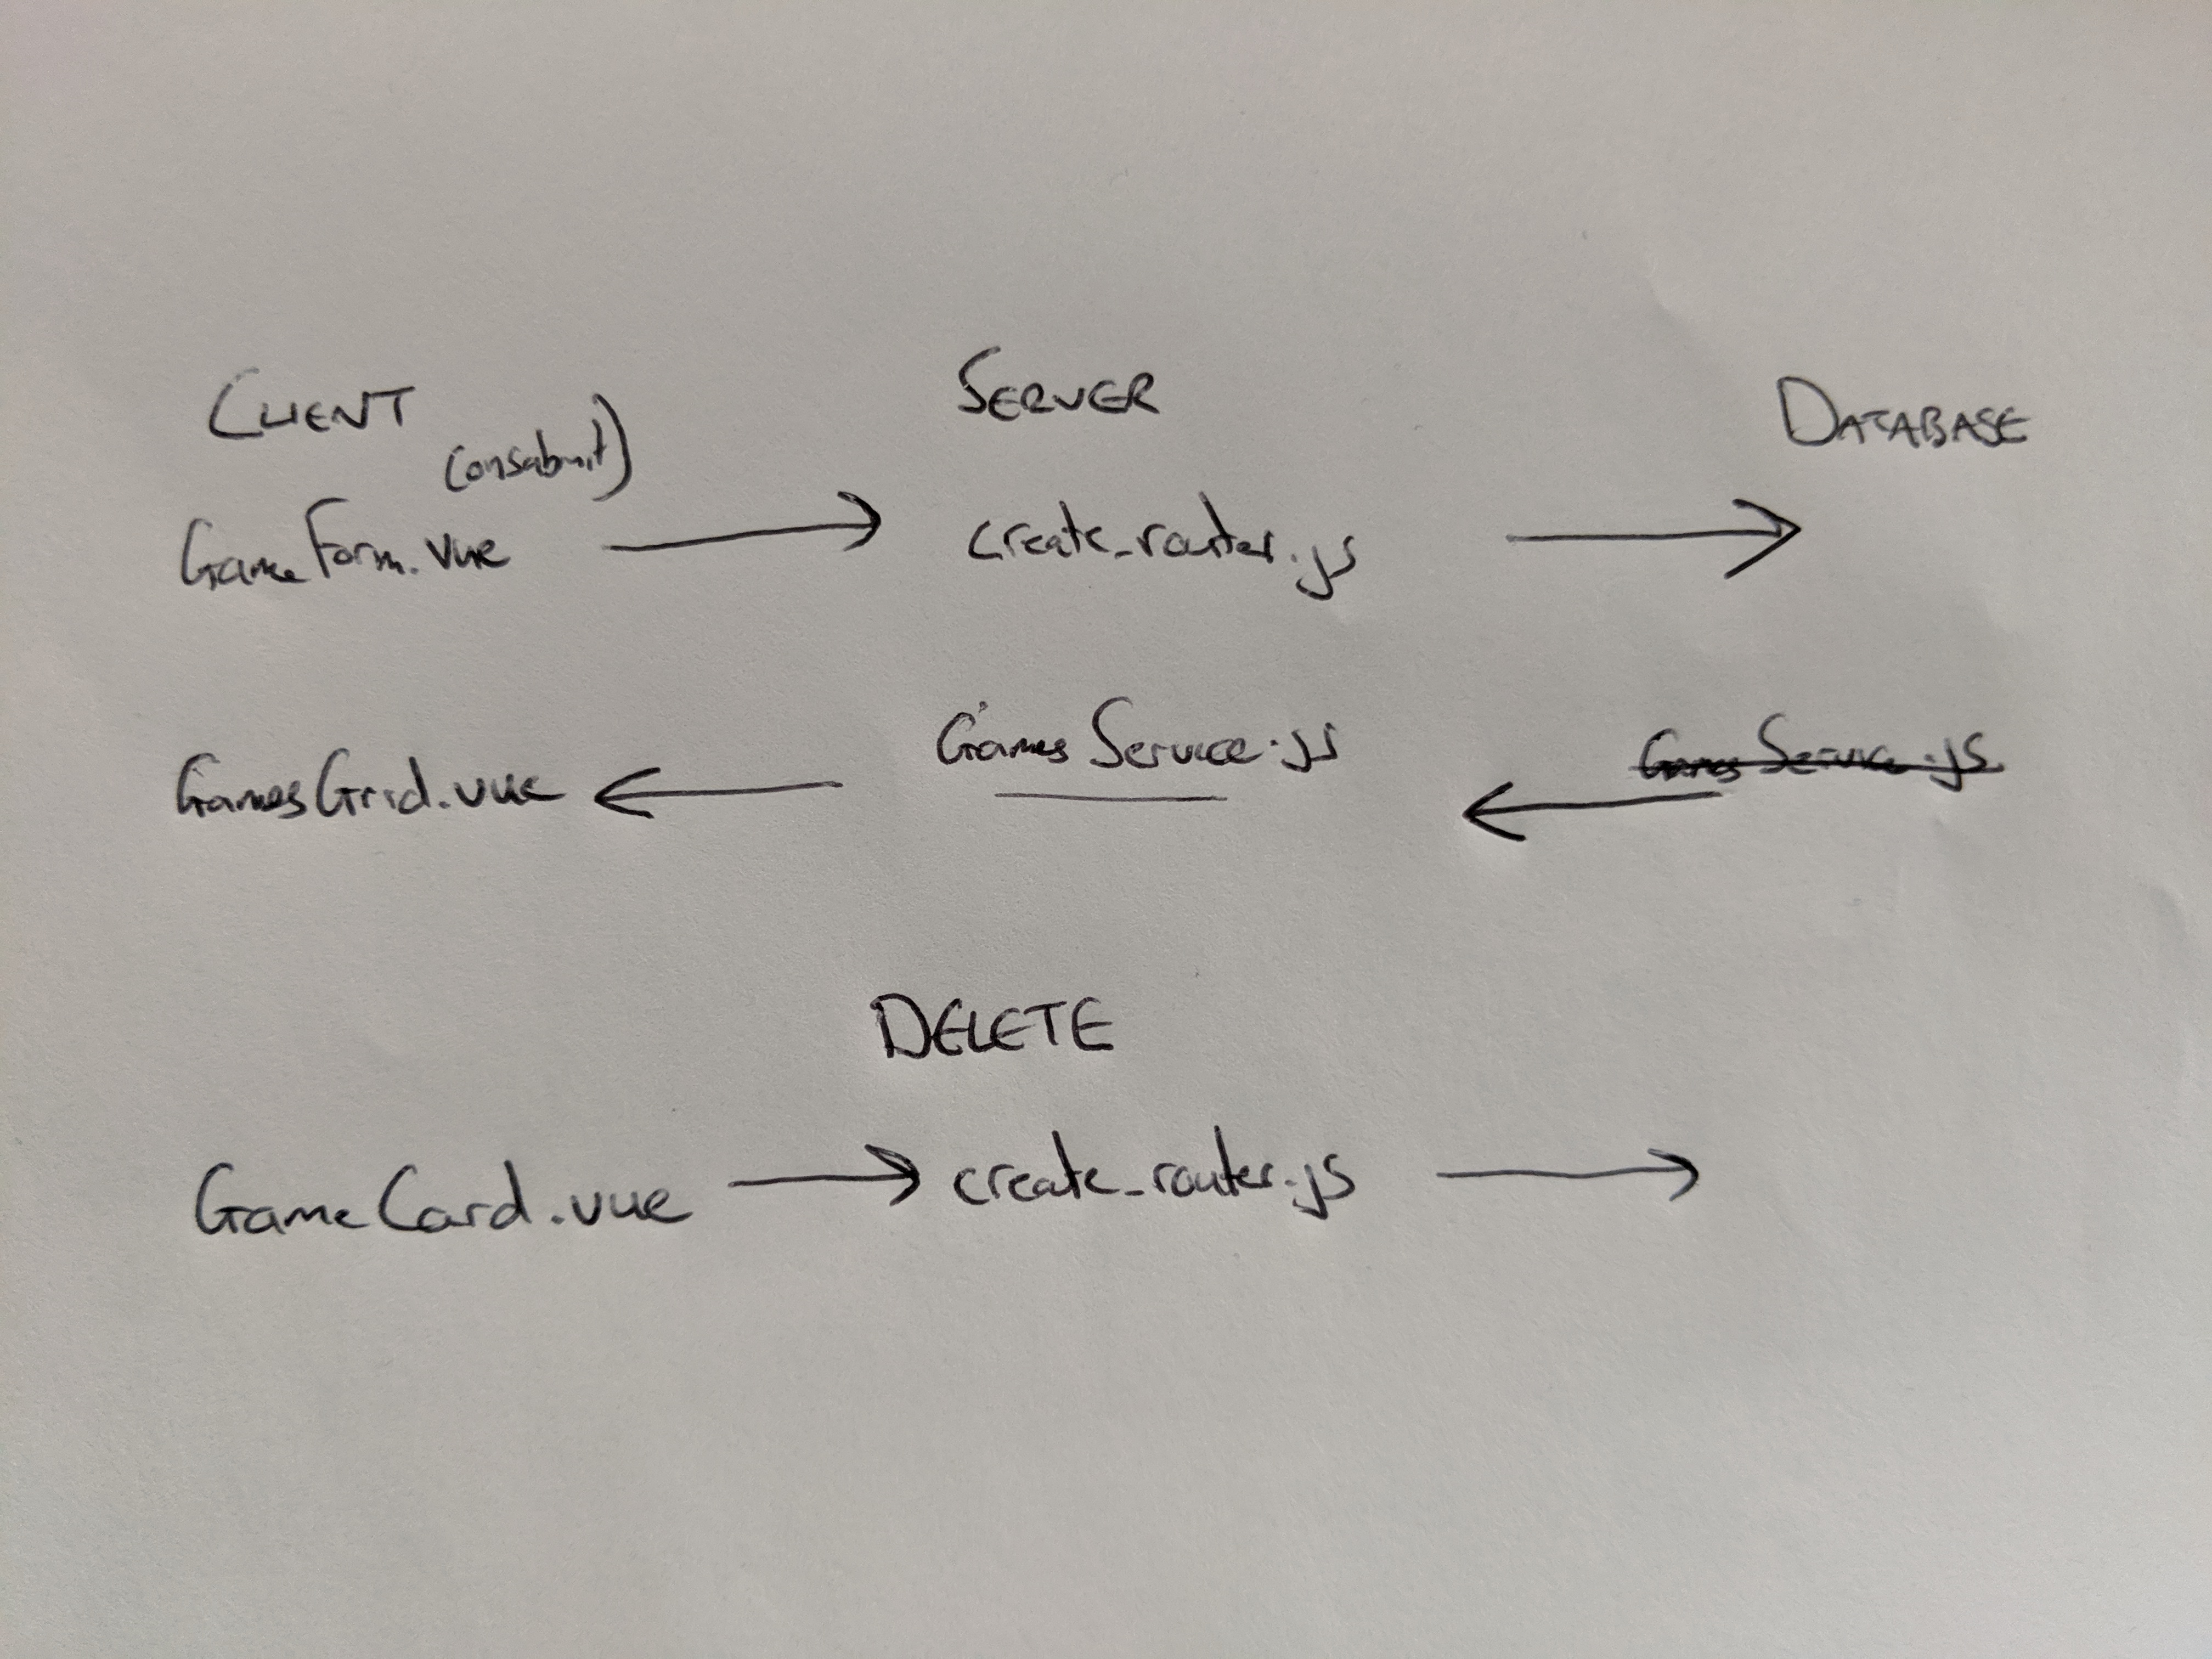 CLIENT SERVER DATABASE
(onsubmit)
GameForm.vue create_router.js
GamesGrid.vue GamesService.js GamesService.js
DELETE
GameCard.vue create_router.js